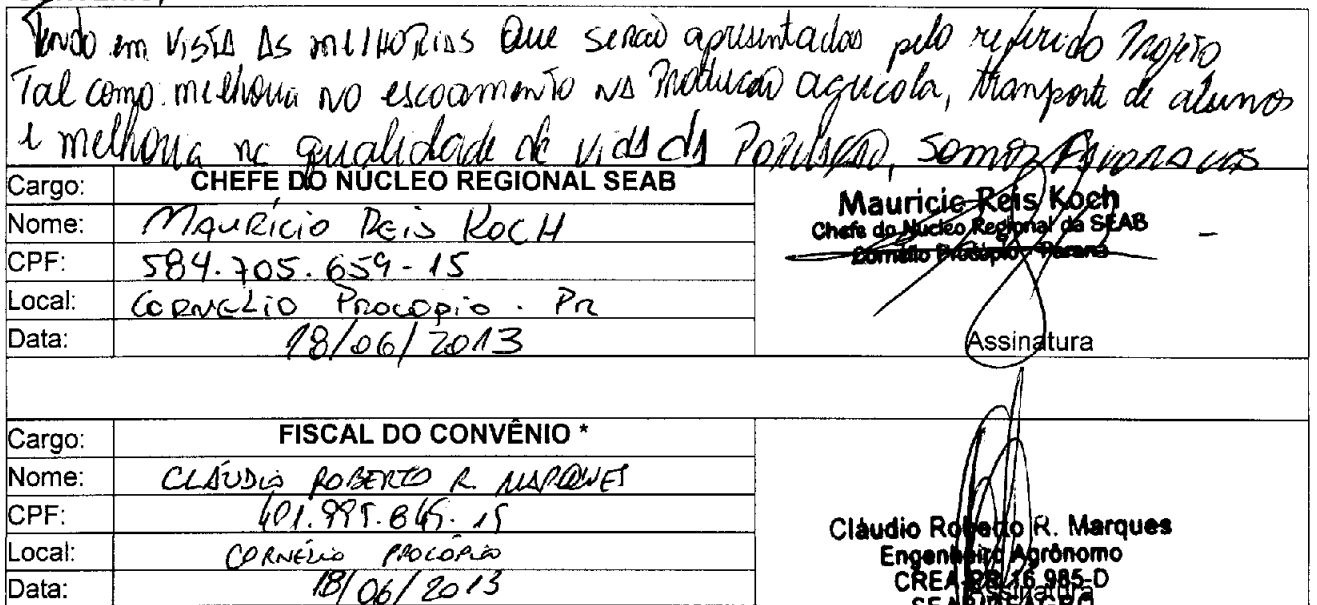 Tendo em vista as melhorias que serão apresentadas pelo referido Projeto
Tal como: melhoria no escoamento na Produção agrícola, transporte de alunos
e melhoria na qualidade de vida da População, somos Favoraveis
Cargo: CHEFE DO NÚCLEO REGIONAL SEAB
Nome: Maurício Reis Koch
CPF: 584.705.659-15
Local: Cornelio Procopio - Pr
Data: 18/06/2013
Mauricio Reis Koch
Chefe do Núcleo Regional da SEAB
Cornélio Procópio - Paraná
Assinatura
Cargo: FISCAL DO CONVÊNIO *
Nome: CLÁUDIO ROBERTO R. MARQUES
CPF:
Local: CORNÉLIO PROCÓPIO
Data: 18/06/2013
Cláudio Roberto R. Marques
Engenheiro Agrônomo
CREA-PR 16.985-D
Assinatura